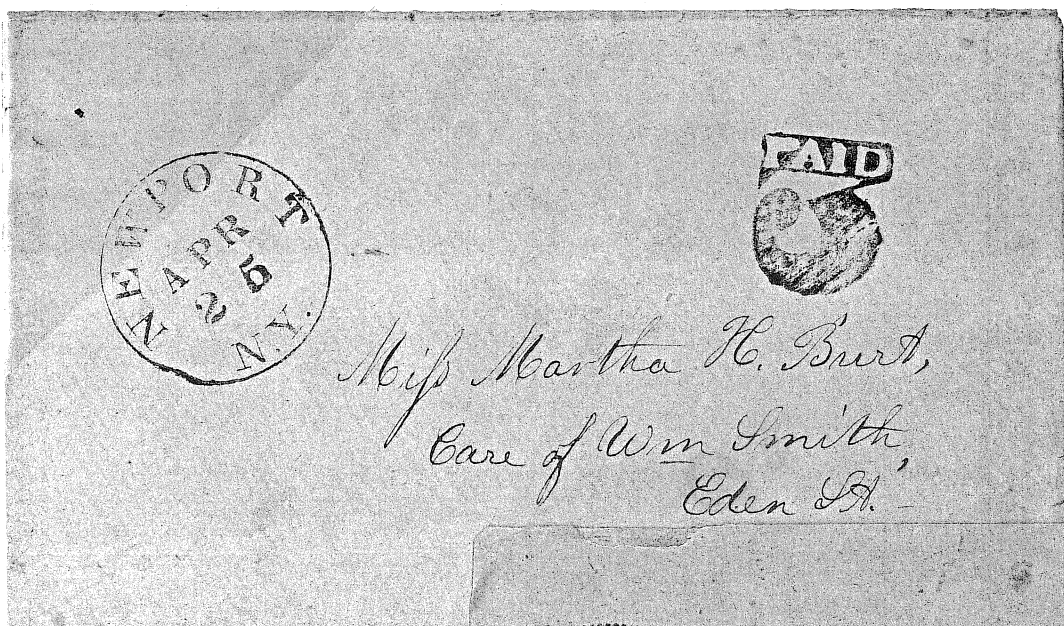 NEWPORT N.Y.
APR
25
PAID
3
Miſs Martha H. Burt,
Care of Wm Smith,
Eden St. -